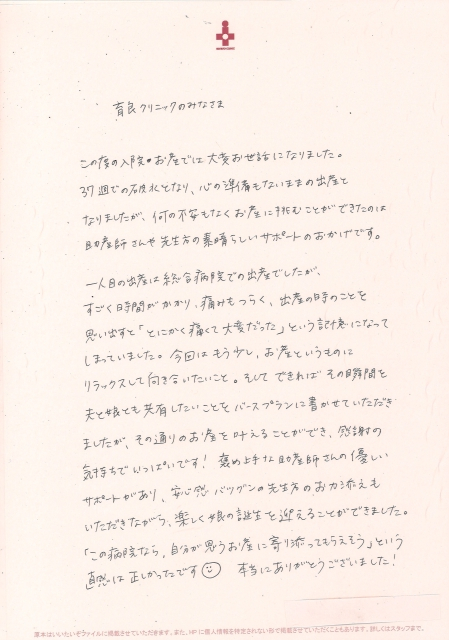 育良クリニックのみなさま
この度の入院・お産では大変お世話になりました。
37週での破水となり、心の準備もないままの出産と
なりましたが、何の不安もなくお産に挑むことができたのは
助産師さんや先生方の素晴らしいサポートのおかげです。
一人目の出産は総合病院での出産でしたが、
すごく時間がかかり、痛みもつらく、出産の時のことを
思い出すと「とにかく痛くて大変だった」という記憶になって
しまっていました。今回はもう少し、お産というものに
リラックスして向き合いたいこと。そして できれば その瞬間を
夫と娘とも共有したいことをバースプランに書かせていただき
ましたが、その通りのお産を叶えることができ、感謝の
気持ちでいっぱいです！ 褒め上手な助産師さんの優しい
サポートがあり、安心感バツグンの先生方のお力添えも
いただきながら、楽しく娘の誕生を迎えることができました。
「この病院なら、自分が思うお産に寄り添ってもらえそう」という
直感は正しかったです 本当にありがとうございました！
原本はいいたいぞファイルに掲載させていただきます。また、HPに個人情報を特定されない形で掲載させていただくこともあります。詳しくはスタッフまで。